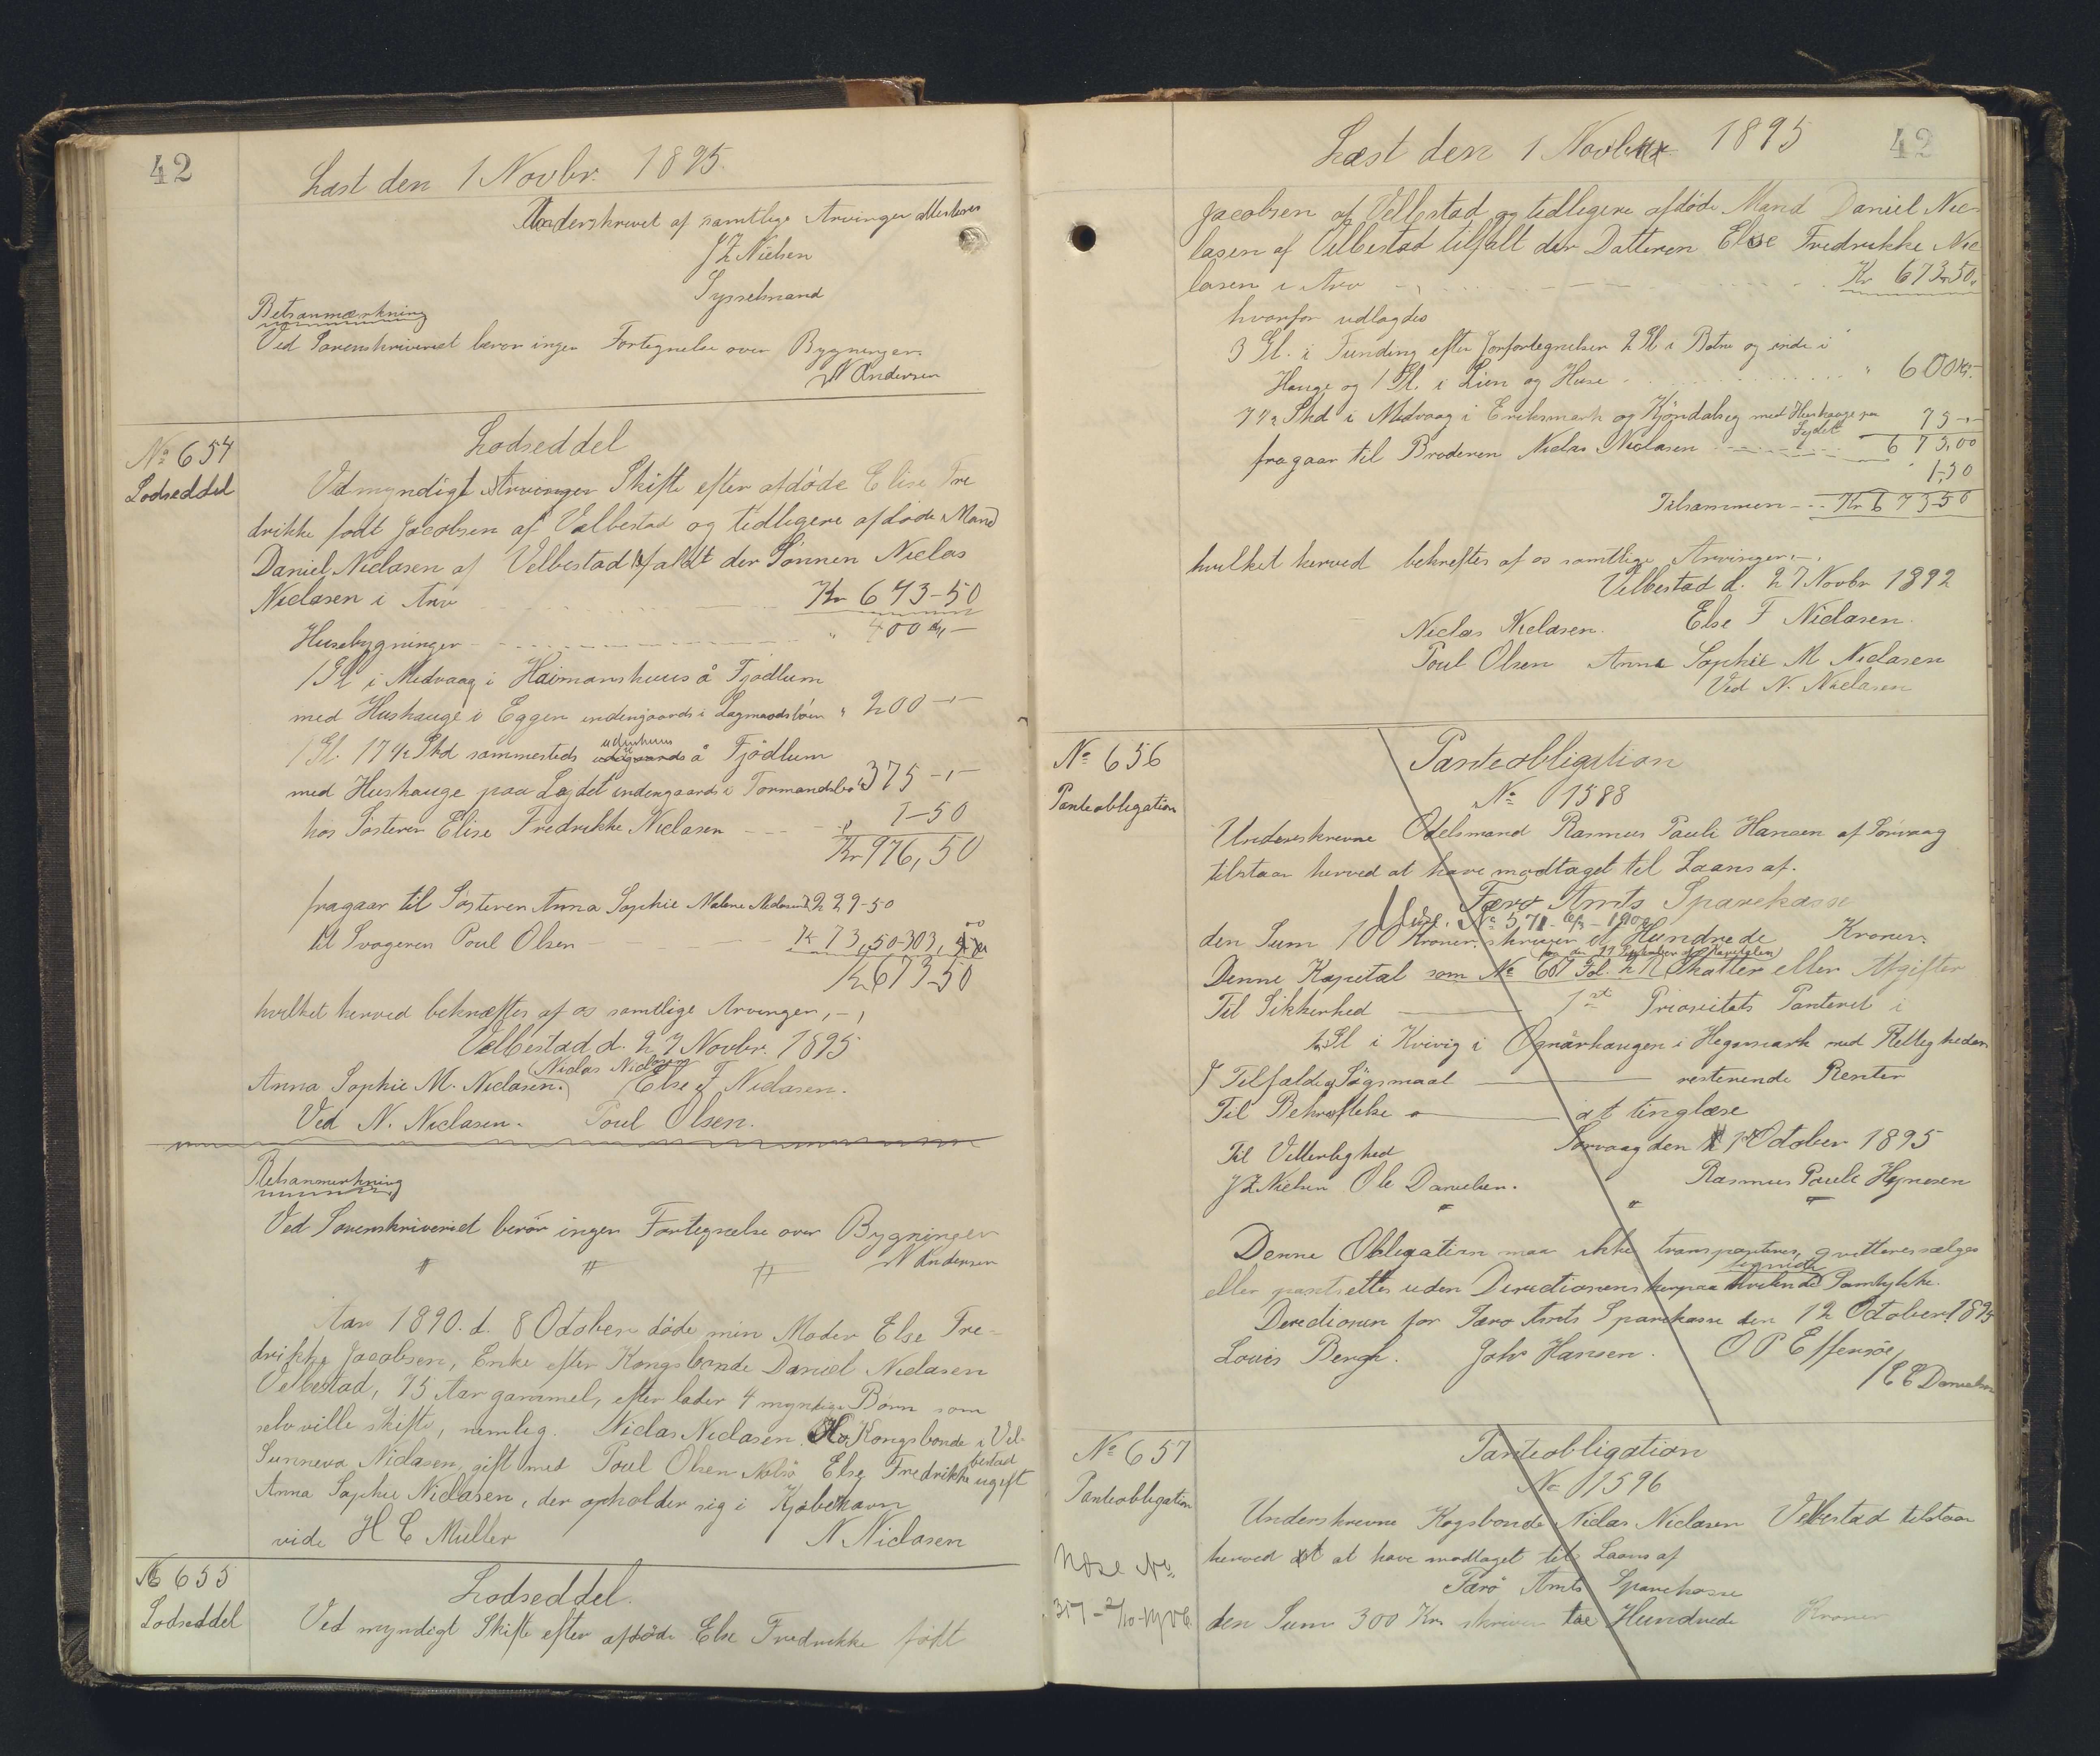 42
Læst den 1 Novbr. 1895.
Underskrevet af samtlige Arvinger attesteres
J Z Nielsen
Sysselmand
Retsanmærkning
Ved Sorenskriveriet berør ingen Fortegnelse over Bygninger.
N Andersen
No 654
Lodseddel
Lodseddel
Ved myndigt Skifte efter afdöde Elise Fre
drikke født Jacobsen af Velbestad og tidligere afdøde Mand
Daniel Niclasen af Velbestad tilfaldt der Sønnen Niclas
Niclasen i Arv Kr 673-50
Husebygninger " 400 Kr. -
1 Gl i Midvaag i Haimanshuus å Fjødlum
med Hushauge i Eggen indengaards i " 200 -,-
1 Gl. 17 1/2 Skd sammesteds udenhuus å Fjødlum
med Hushauge paa Løjdet indengaards i 375 -,-
hos Søsteren Elise Fredrikke Niclasen 1-50
Kr 976,50
fragaar til Søsteren Anna Sophie Malene Niclasen 229-50
til Svogeren Poul Olsen Kr 73,50 303,00
Kr 673-50
hvilket herved bekræftes af os samtlige Arvinger, -,
Velbestad d. 27 Novbr. 1895
Niclas Niclasen
Anna Sophie M. Niclasen. Else F Niclasen.
Ved N. Niclasen. Poul Olsen.
Retsanmerkning
Ved Sorenskriveriet berör ingen Fortegnelse over Bygninger
N Andersen
Aar 1890. d. 8 October döde min Moder Else Fre-
drikke Jacobsen, Enke efter Kongsbonde Daniel Niclasen
Velbestad, 75 Aar gammel, efter lader 4 myndige Børn som
selv ville skifte, nemlig. Niclas Niclasen Kongsbonde i Vel-
bestad
Sunneva Niclasen, gift med Poul Olsen Nolsö Else Fredrikke ugift
Anna Sophie Niclasen, der opholder sig i Kjøbenhavn
vide H C Müller N Niclasen
No 655
Lodseddel
Lodseddel.
Ved myndigt Skifte efter afdöde Else Fredrikke født
42
Læst den 1 Novbr 1895
Jacobsen af Velbestad og tidligere afdöde Mand Daniel Nic
lasen af Velbestad tilfalt der Datteren Else Fredrikke Nic
lasen i Arv Kr 673,50.
hvorfor udlagdes
3 Gl. i Funding efter Jorfortegnelsen 2 Gl i Botne og inde i
Hauge og 1 Gl. i Lien og Huse " 600 Kr.
7 1/2 Skd i Midvaag i Eriksmark og med Hushauge paa 75 -,-
Lydet
fragaar til Broderen Niclas Niclasen 675,00
1,50
Tilsammen - - Kr 673-50
hvilket herved bekreftes af os samtlige Arvinger. -,
Velbestad d. 27 Novbr 1892
Niclas Niclasen. Else F Niclasen.
Poul Olsen Anna Sophie M Niclasen
Ved N. Niclasen
No 656
Panteobligation
Panteobligation
No 1588
Underskrevne Odelsmand Rasmus Pauli Hansen af Sörvaag
tilstaar herved at have modtaget til Laans af.
Færo Amts Sparekasse
Udsl. No 571
den Sum 100 Kroner. skriver et Hundrede Kroner.
Denne Kapital som No 607 Fol. 27 Skatter eller Afgifter
Til Sikkerhed 1st Prioritets Panteret i
1 Gl i Kvivig i i Hegemark med Rettigheder
I Tilfælde af Søgsmaal restenende Renter
Til Bekræftelse at tinglæse
Til Vitterlighed Sørvaag den October 1895
J Z Nielsen Ole Danielsen. Rasmus Pauli
Denne Obligation maa ikke transporteres, qvitteres sælges
eller pantsettes uden Directionens herpaa tegnede Samtykke.
Directionen for Færo Amts Sparekasse den 12 October 1895
Louis Bergh. Johs Hansen. O P Effersöe
/ E E Danielsen
No 657
Panteobligation
Panteobligation
No 1596
Underskrevne Kogsbonde Niclas Niclasen Velbestad tilstaar
herved at have modtaget til Laans af
Færö Amts Sparekasse
Udsl No
den Sum 300 Kr. skriver tre Hundrede Kroner